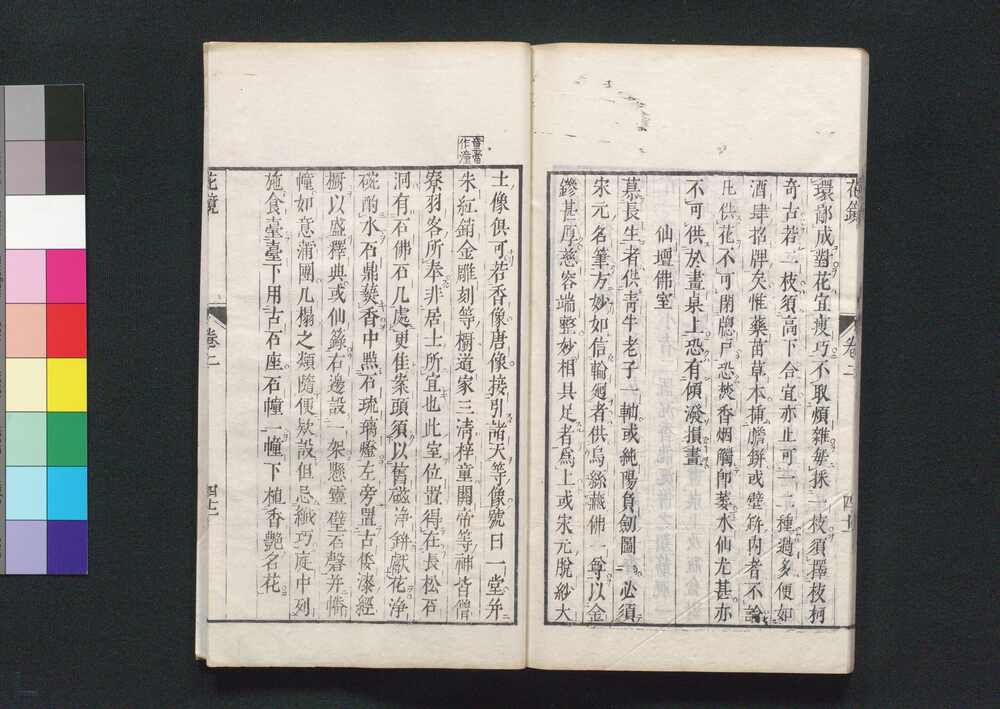 花鏡
卷二
環鄙成翳花宜瘦巧不取煩雜每採一枝須擇枝柯
奇古若二枝須高下合宜亦止可一二種過多便如
酒肆招牌矣惟藥苗草本揷膽缾或壁缾內者不論
凡供花不可閉牕戸恐焚香烟觸卽萎水仙尤甚亦
不可供於畫桌上恐有傾潑損畫
仙壇佛室
慕長生者供靑牛老子一軸或純陽負劒圖一必須
宋元名筆方妙如信輪廻者供烏絲藏佛一尊以金
鏒甚厚慈容端整妙相具足者爲上或宋元脫紗大
童當作潼
士像俱可若香像唐像接引諸天等像號曰一堂幷
朱紅銷金雕刻等櫥道家三淸梓童關帝等神皆僧
寮羽客所奉非居士所宜也此室位置得在長松石
洞有石佛石几處更佳案頭須以舊磁淨缾獻花淨
碗酌水石鼎爇香中㸃石琉璃燈左旁置古倭漆經
櫥以盛釋典或仙籙右邊設一架懸靈璧石磬幷幡
幢如意蒲團几榻之類隨便欵設但忌纎巧庭中列
施食臺臺下用古石座石幢一幢下植香艶名花
花鏡
卷二